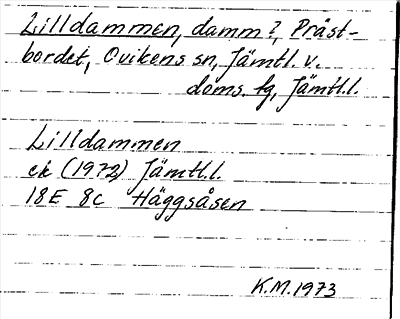 Lilldammen, damm?, Präst-
bordet, Ovikens sn, Jämtl. v.
doms. fg, Jämtl.l.
Lilldammen
ek (1972) Jämtl.l.
18E 8c Häggsåsen
K.M. 1973